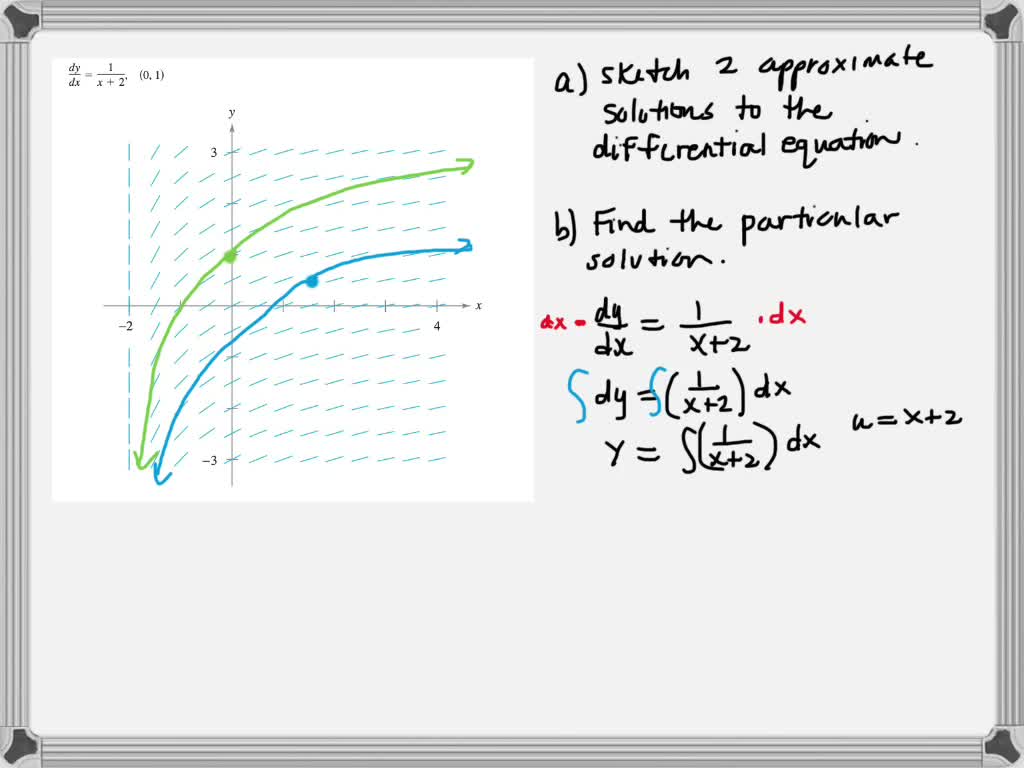 dy/dx = 1/(x + 2), (0, 1)
y
3
x
−2
4
−3
a) sketch 2 approximate
solutions to the
differential equation.
b) Find the particular
solution.
dx · dy/dx = 1/(x+2) · dx
∫ dy = ∫ (1/(x+2)) dx
u = x+2
y = ∫ (1/(x+2)) dx